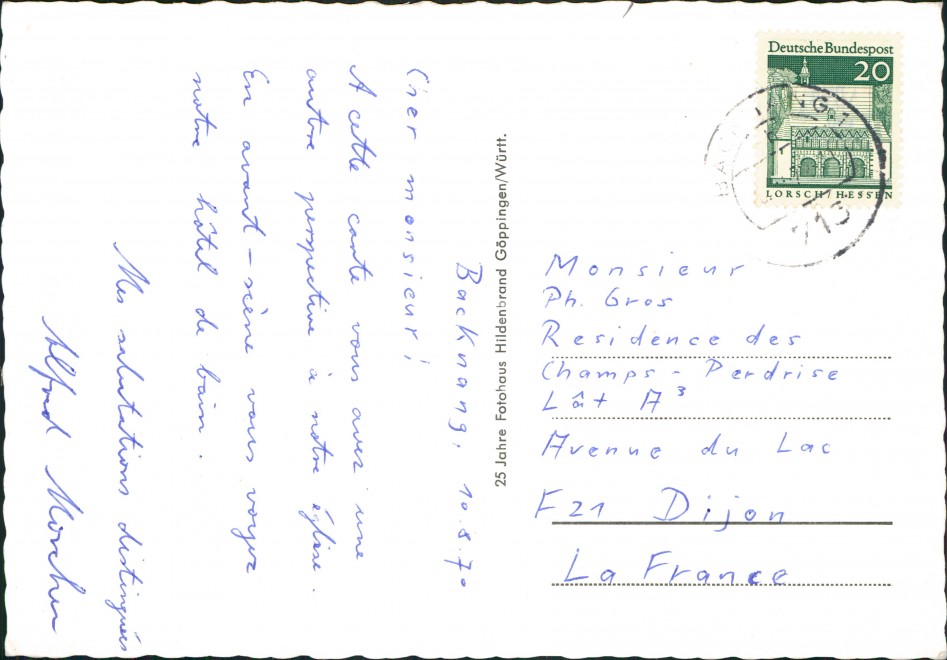 Backnang, 10.8.70
Cher monsieur!
A cette carte vous avez une
autre perspective à notre église.
En avant-scène vous voyez
notre hôtel de bain.
Mes salutations distinguées
Alfred
25 Jahre Fotohaus Hildenbrand Göppingen/Württ.
Deutsche Bundespost
20
LORSCH/HESSEN
BACKNANG 1
713
Monsieur
Ph. Gros
Residence des
Champs - Perdrise
Lât A³
Avenue du Lac
F21 Dijon
La France